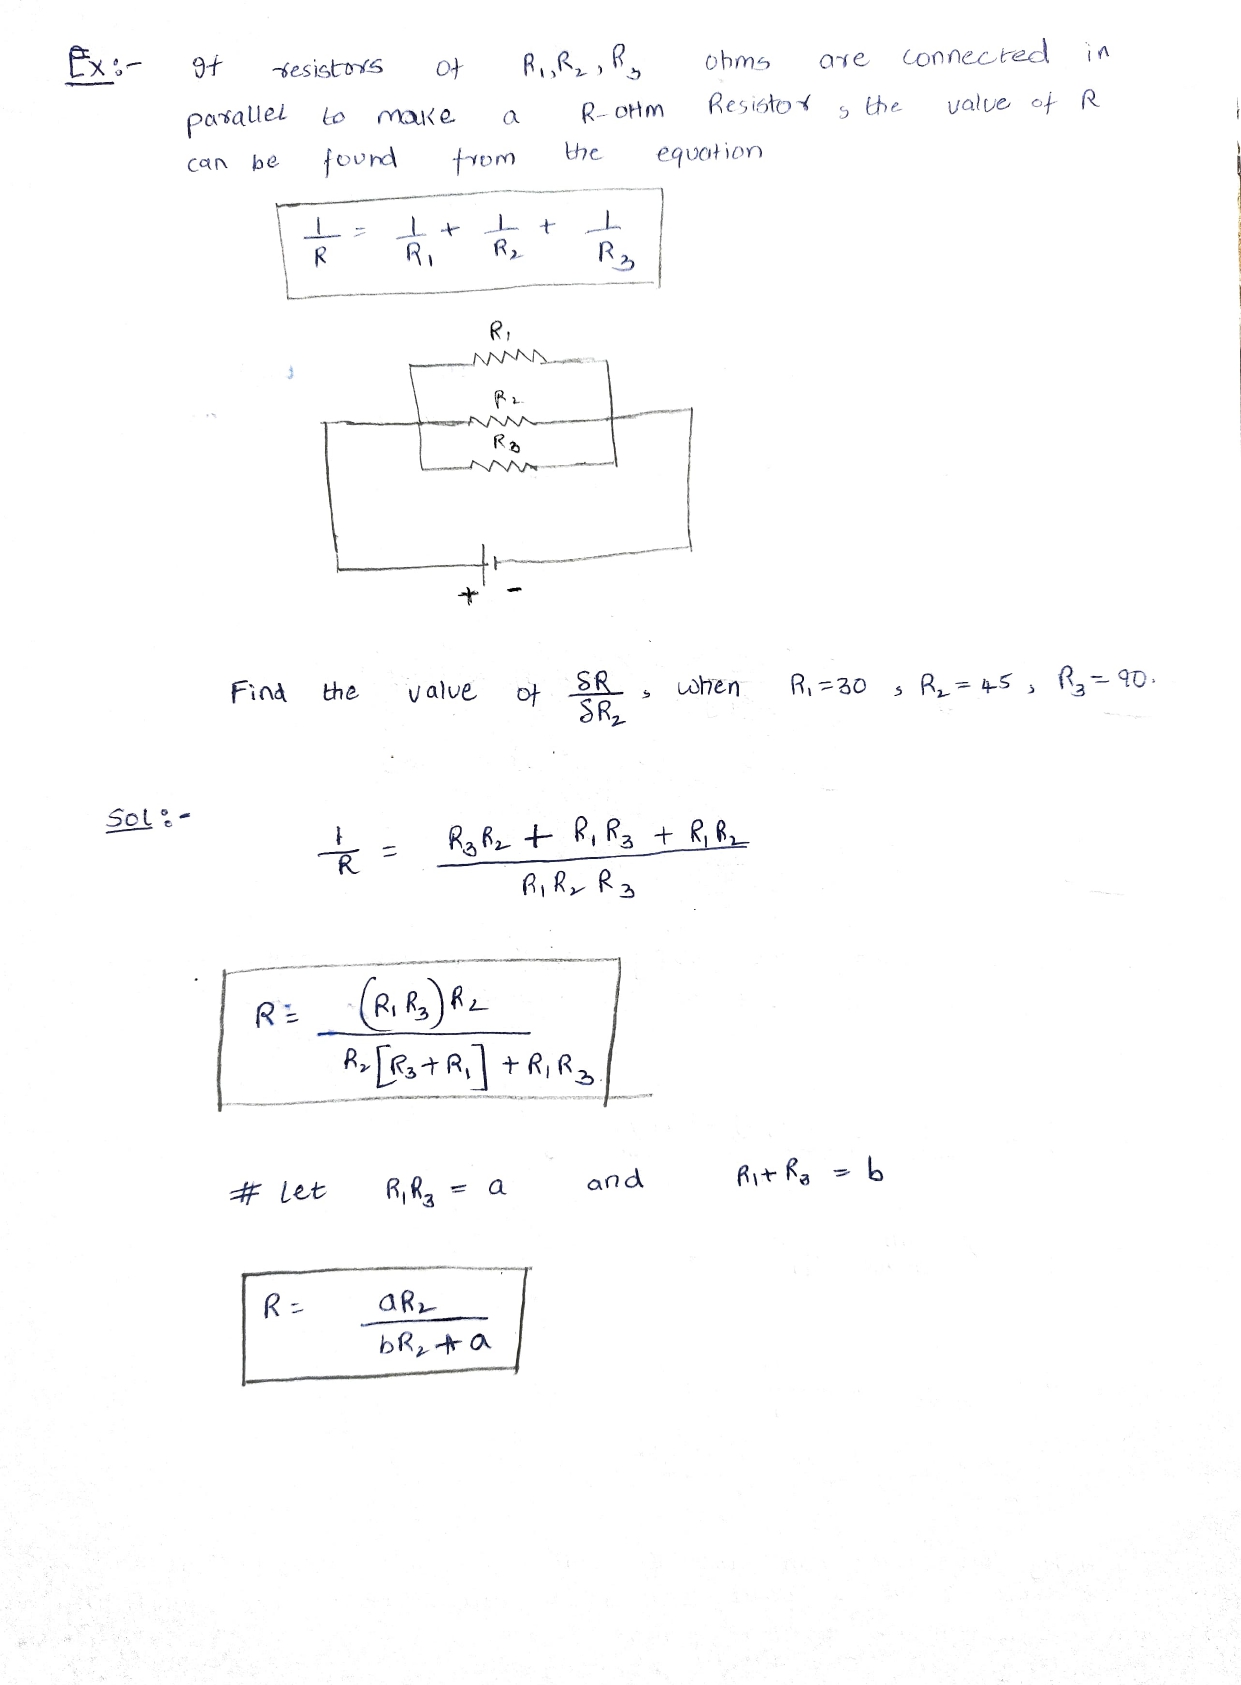 Ex:- If resistors of R₁, R₂, R₃ ohms are connected in
parallel to make a R-OHM Resistor, the value of R
can be found from the equation
1/R = 1/R₁ + 1/R₂ + 1/R₃
R₁
R₂
R₃
+ -
Find the value of δR/δR₂, when R₁=30, R₂=45, R₃=90.
Sol:-
1/R = (R₃R₂ + R₁R₃ + R₁R₂)/(R₁R₂R₃)
R = (R₁R₃)R₂/(R₂[R₃+R₁]+R₁R₃)
# Let R₁R₃ = a and R₁+R₃ = b
R = aR₂/(bR₂+a)